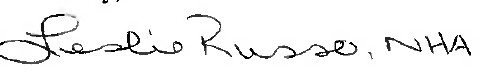 Leslie Russo, NHA